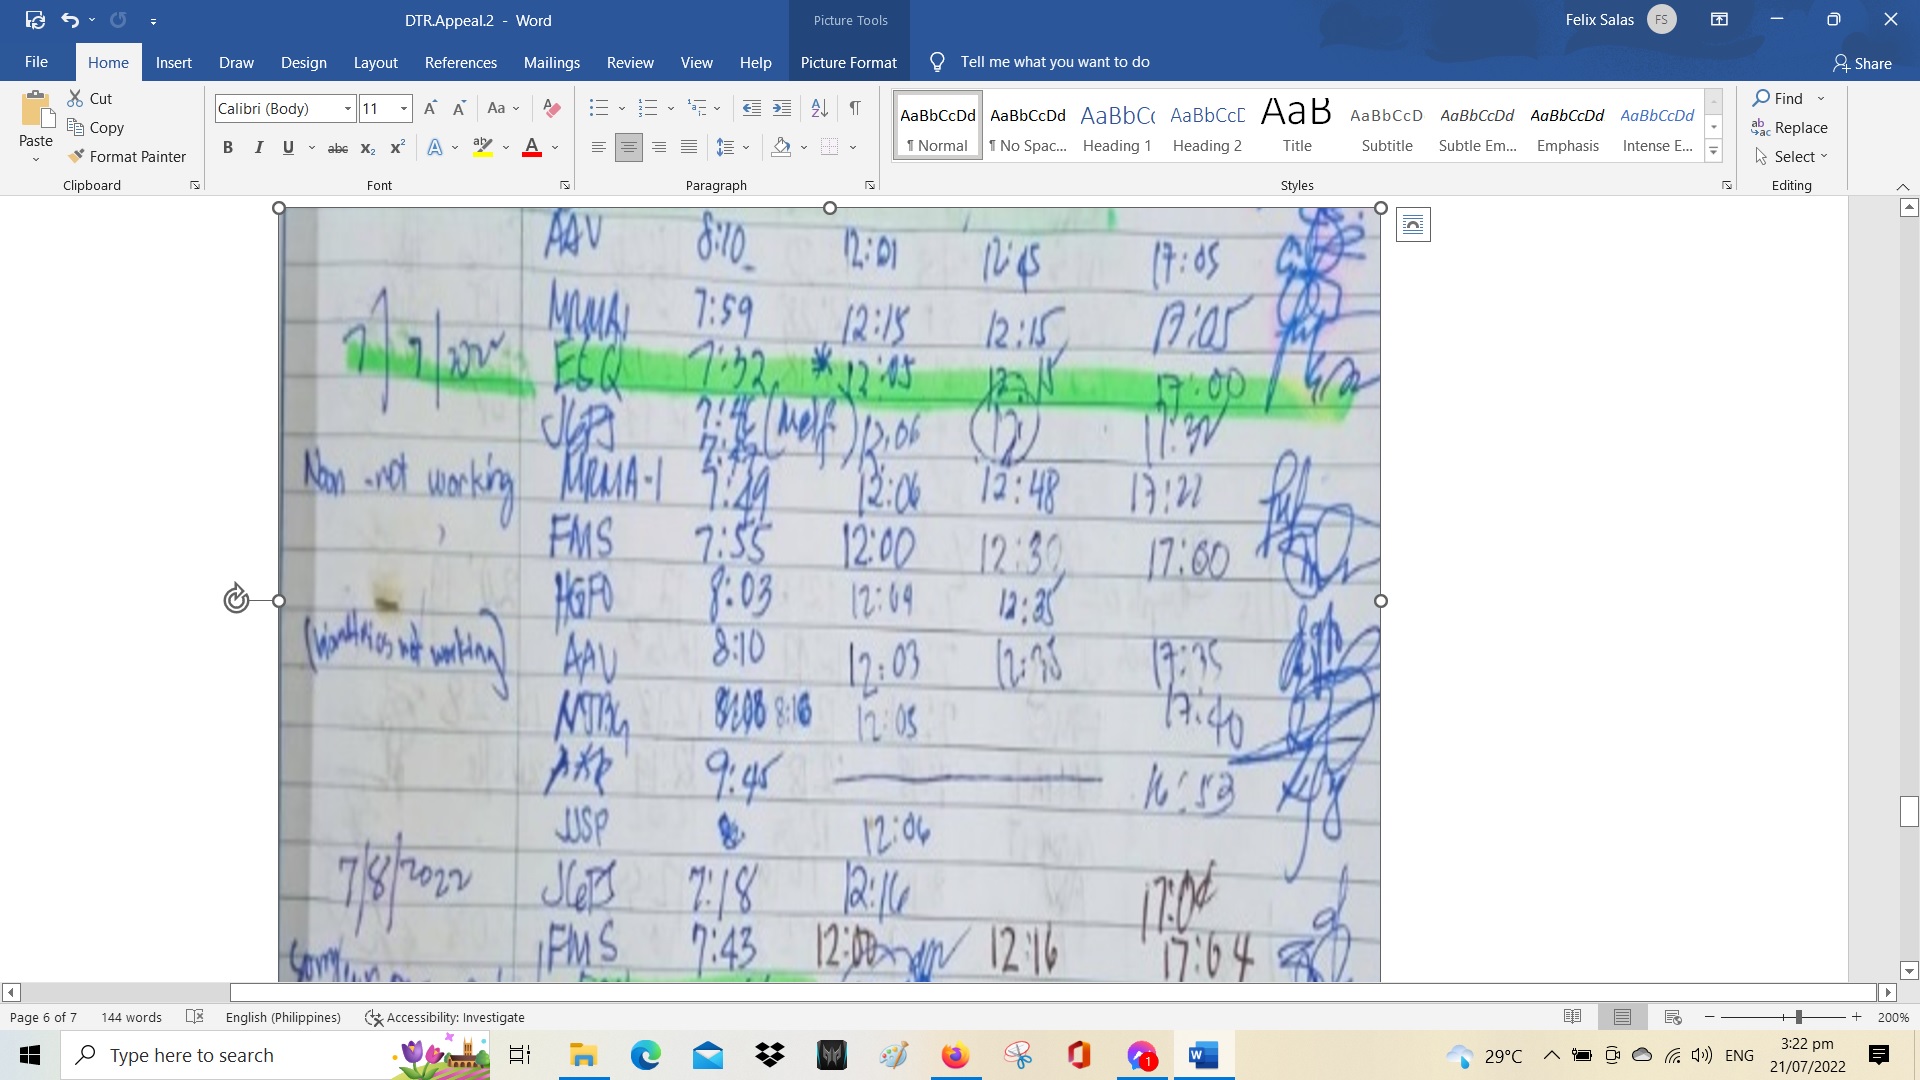 DTR.Appeal.2 - Word
Picture Tools
Felix Salas
FS
File Home Insert Draw Design Layout References Mailings Review View Help Picture Format Tell me what you want to do Share
Paste
Cut
Copy
Format Painter
Clipboard
Calibri (Body) 11
Font
Paragraph
AaBbCcDd AaBbCcDd AaBbC AaBbCcD AaB AaBbCcD AaBbCcDd AaBbCcDd AaBbCcDd
¶ Normal ¶ No Spac... Heading 1 Heading 2 Title Subtitle Subtle Em... Emphasis Intense E...
Styles
Find
Replace
Select
Editing
AAV 8:10 12:01 12:45 17:05
MRMA1 7:59 12:15 12:15 17:05
7/7/2022 ESQ 7:32 * 12:05 17:00
JGPS (Melf) 12:06
Noon -not working MRMA-1 7:49 12:06 12:48 17:22
FMS 7:55 12:00 12:30 17:00
HGFO 8:03 12:09 12:35
(biometrics not working) AAV 8:10 12:03 12:35 17:35
8:16 12:05 17:40
9:45 16:53
JJSP 12:06
7/8/2022 JGPS 7:18 12:16
FMS 7:43 12:00 12:16 17:04
Page 6 of 7 144 words English (Philippines) Accessibility: Investigate 200%
Type here to search
1
29°C
ENG
3:22 pm
21/07/2022